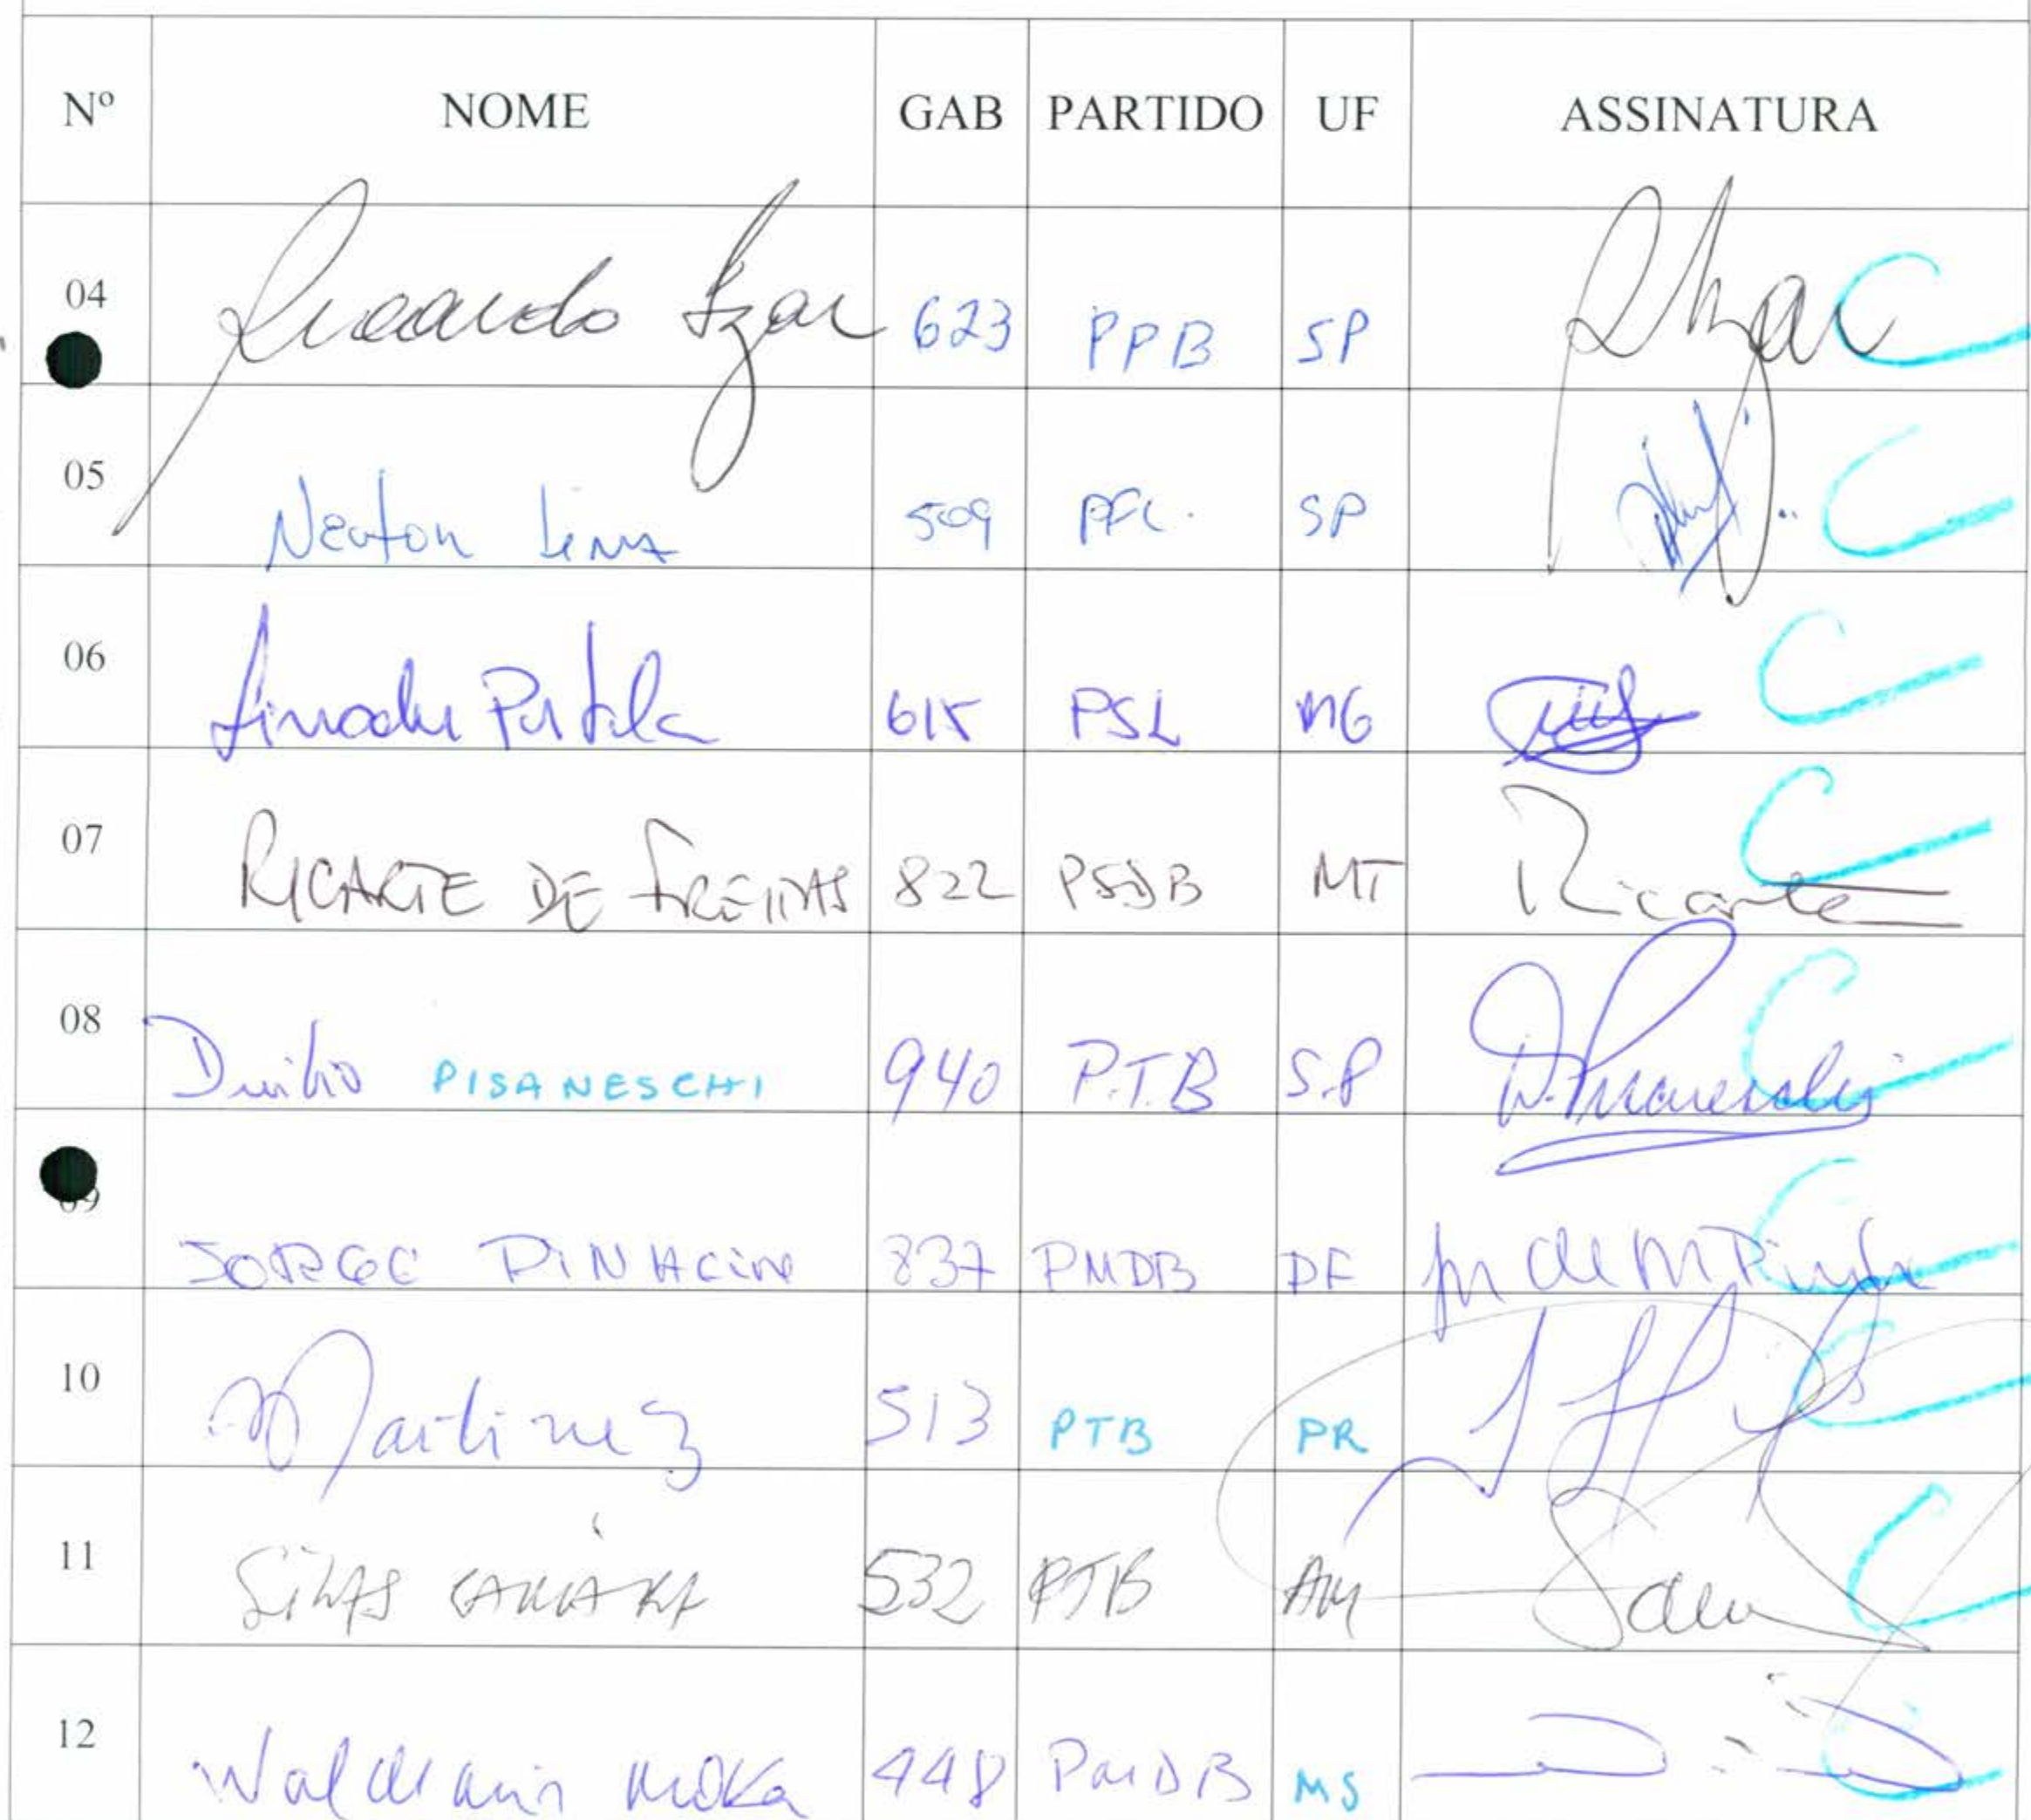 Nº NOME GAB PARTIDO UF ASSINATURA
04 Ricardo Izar 623 PPB SP
05 Newton Lima 509 PFL. SP
06 Lincoln Portela 615 PSL MG
07 RICARTE DE FREITAS 822 PSDB MT Ricarte
08 Duilio PISANESCHI 940 P.T.B S.P
09 JORGE PINHEIRO 837 PMDB DF
10 Martinez 513 PTB PR
11 SILAS CÂMARA 532 PTB AM
12 Waldemir Moka 448 PMDB MS